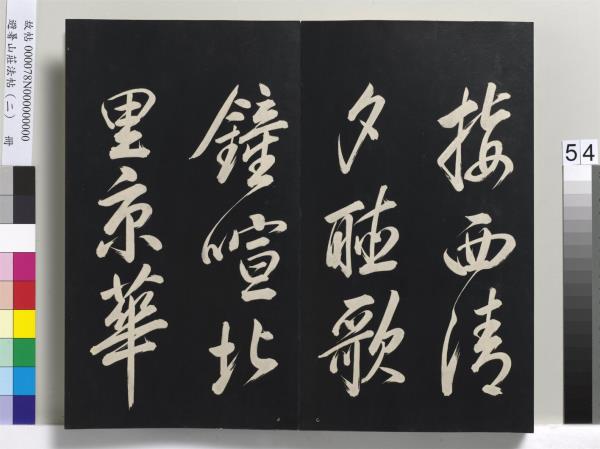 接西清
夕聽歌
鐘喧北
里京華
故帖 000078N000000000
避暑山莊法帖(二) 冊
54